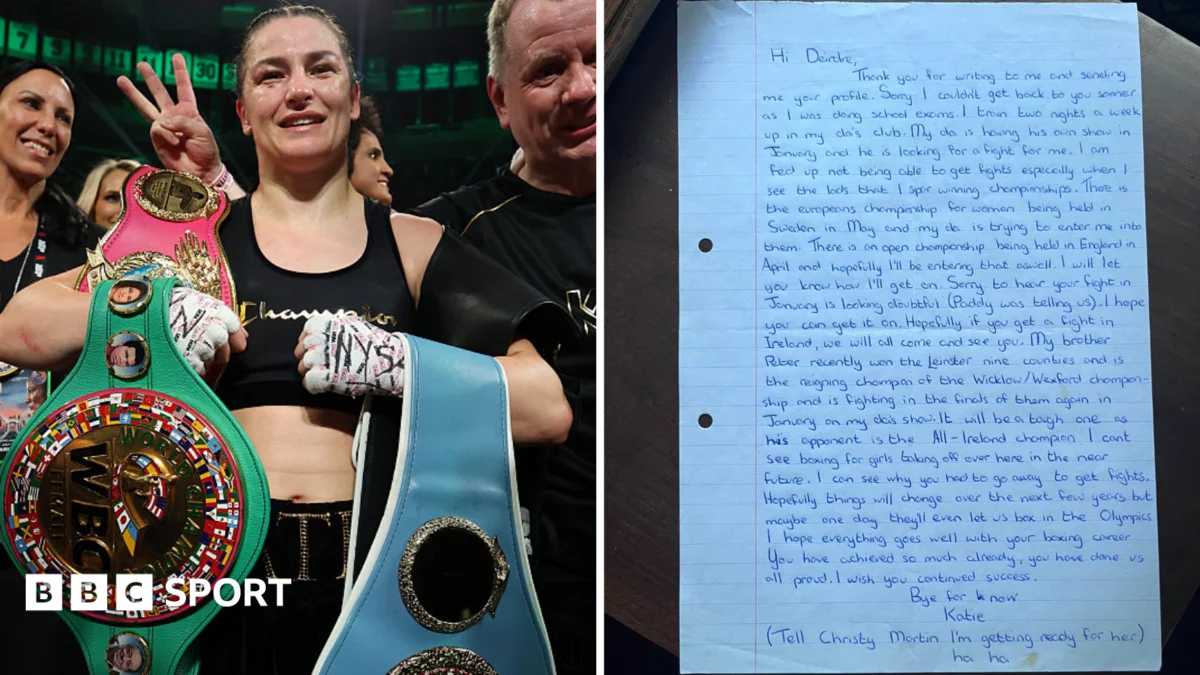 Champion
NYSA
WORLD
WBC
BBC SPORT
Hi Deirdre,
Thank you for writing to me and sending
me your profile. Sorry I couldn't get back to you sooner
as I was doing school exams. I train two nights a week
up in my da's club. My da is having his own show in
January and he is looking for a fight for me. I am
fed up not being able to get fights especially when I
see the lads that I spar winning championships. There is
the europeans championship for women being held in
Sweden in May and my da is trying to enter me into
them. There is an open championship being held in England in
April and hopefully I'll be entering that aswell. I will let
you know how I'll get on. Sorry to hear your fight in
January is looking doubtful (Paddy was telling us). I hope
you can get it on. Hopefully if you get a fight in
Ireland, we will all come and see you. My brother
Peter recently won the Leinster nine counties and is
the reigning champion of the Wicklow/Wexford champion-
ship and is fighting in the finals of them again in
January on my da's show. It will be a tough one as
his opponent is the All-Ireland champion. I cant
see boxing for girls taking off over here in the near
future. I can see why you had to go away to get fights.
Hopefully things will change over the next few years but
maybe one day they'll even let us box in the Olympics
I hope everything goes well with your boxing career
You have achieved so much already, you have done us
all proud. I wish you continued success.
Bye for know
Katie
(Tell Christy Martin I'm getting ready for her)
ha ha